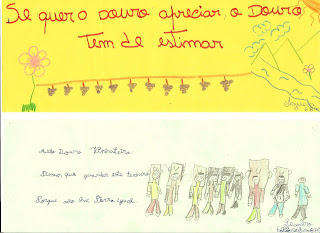 Se quer o Douro apreciar, o Douro
Tem de estimar
Alto Douro Vinhateiro
Temos que guardar este tesouro
Porque não há Terra igual.